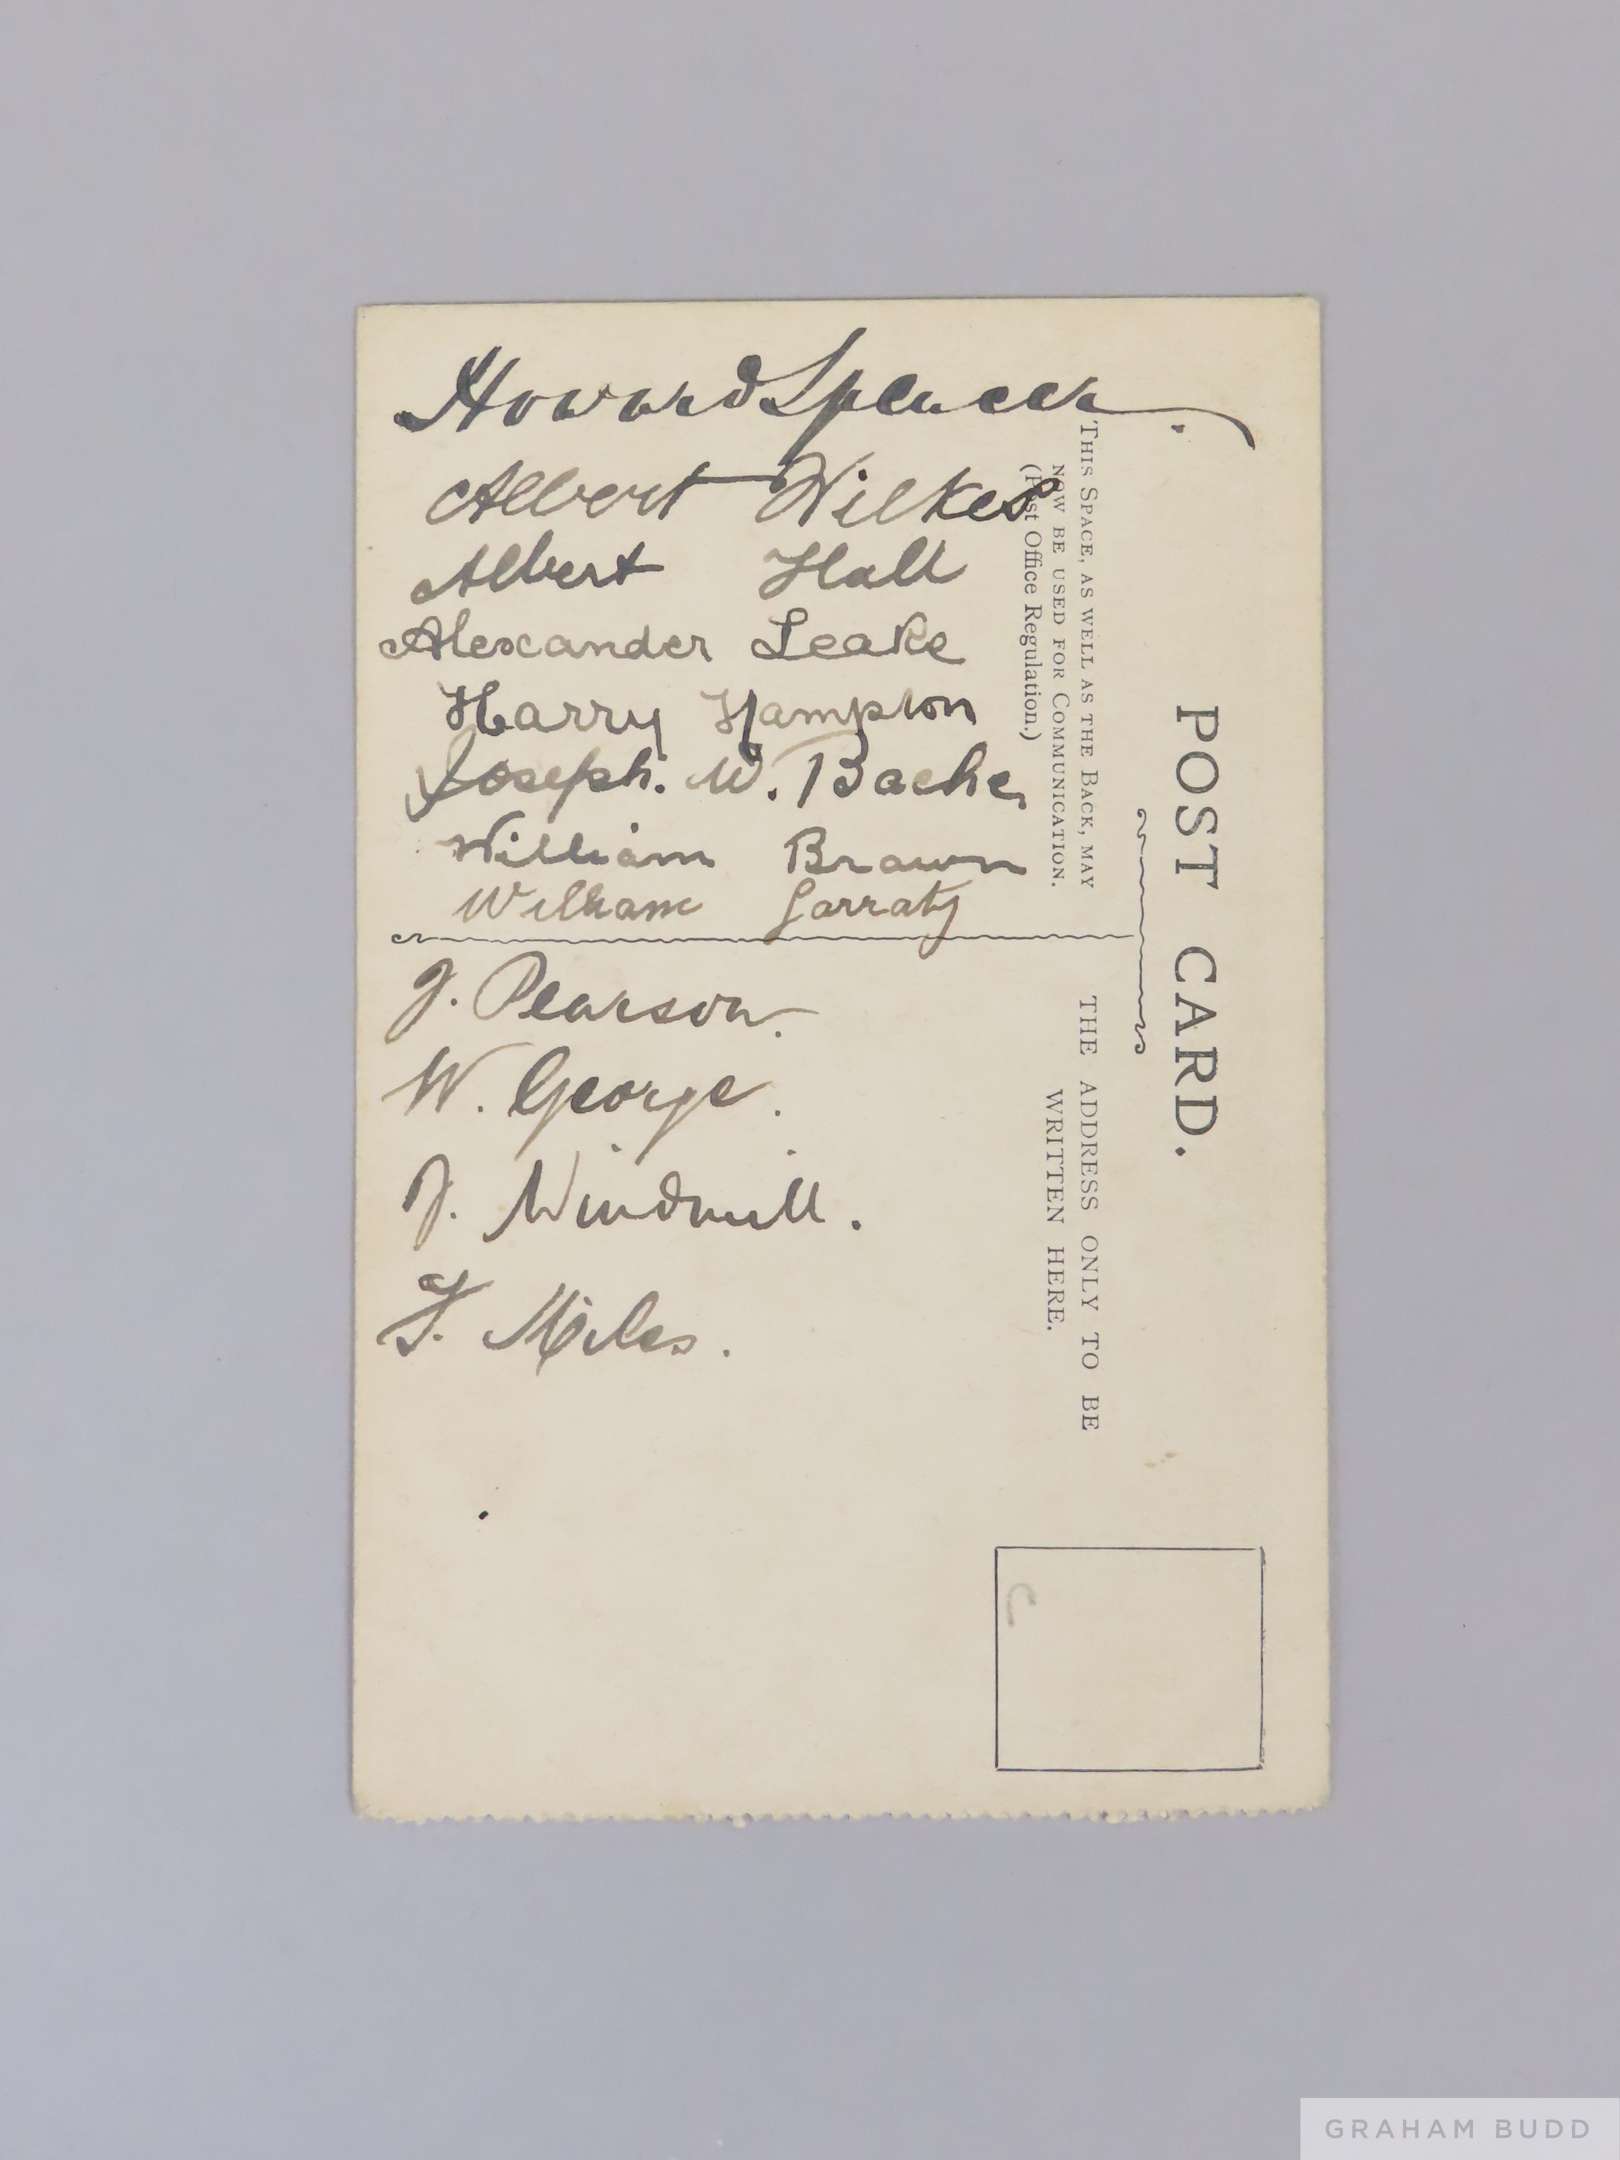 Howard Spencer.
Albert Wilkes
Albert Hall
Alexander Leake
Harry Hampton
Joseph. W. Bache
William Brawn
William Garraty
J. Pearson.
W. George.
J. Windmill.
F. Miles.
POST CARD.
THIS SPACE, AS WELL AS THE BACK, MAY
NOW BE USED FOR COMMUNICATION.
(Post Office Regulation.)
THE ADDRESS ONLY TO BE
WRITTEN HERE.
GRAHAM BUDD